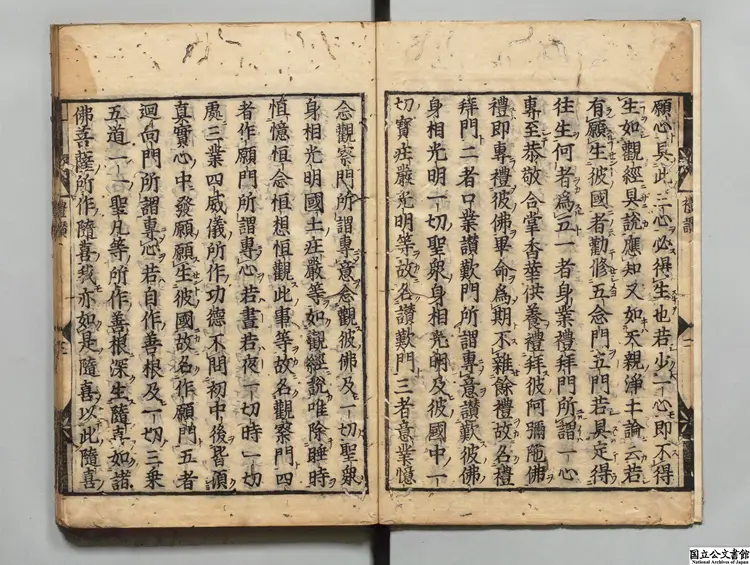 願心具此三心必得生也若少一心即不得
生如觀經具說應知又如天親淨土論云若
有願生彼國者勸修五念門五門若具定得
往生何者為五一者身業禮拜門所謂一心
專至恭敬合掌香華供養禮拜彼阿彌陀佛
禮即專禮彼佛畢命為期不雜餘禮故名禮
拜門二者口業讚歎門所謂專意讚歎彼佛
身相光明一切聖衆身相光明及彼國中一
切寶莊嚴光明等故名讚歎門三者意業憶
念觀察門所謂專意念觀彼佛及一切聖衆
身相光明國土莊嚴等如觀經說唯除睡時
恒憶恒念恒想恒觀此事等故名觀察門四
者作願門所謂專心若晝若夜一切時一切
處三業四威儀所作功德不問初中後皆須
真實心中發願願生彼國故名作願門五者
迴向門所謂專心若自作善根及一切三乘
五道一一聖凡等所作善根深生隨喜如諸
佛菩薩所作隨喜我亦如是隨喜以此隨喜
禮讚
禮讚
国立公文書館
National Archives of Japan